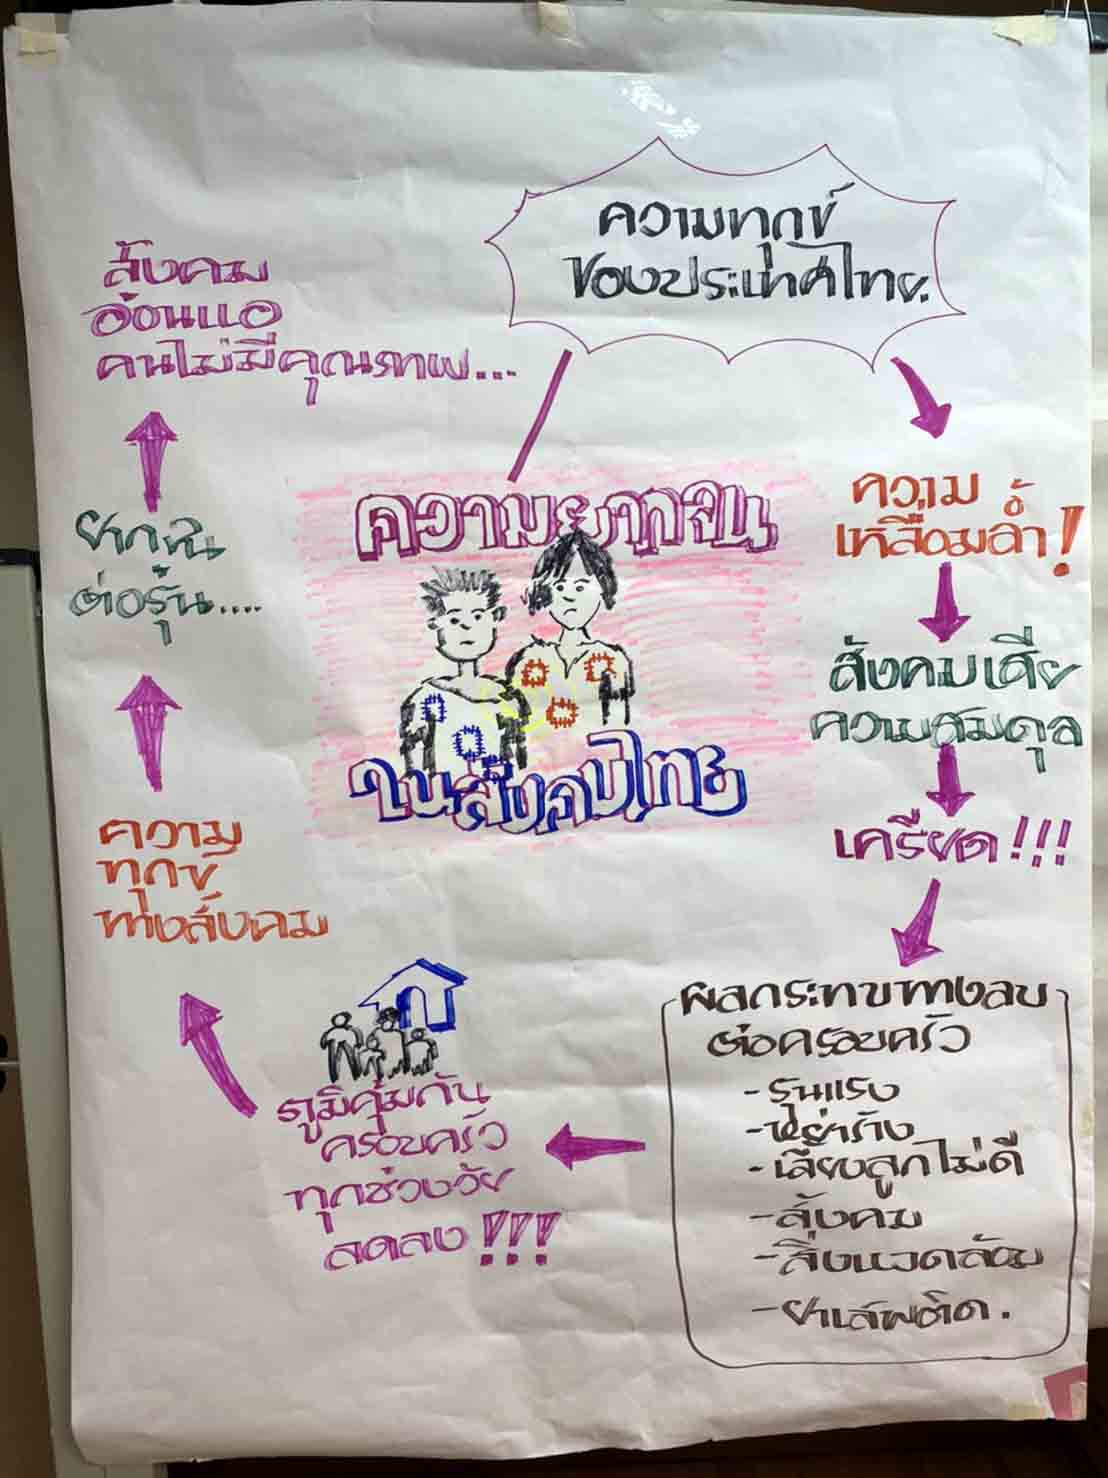 ความทุกข์
ของประเทศไทย.
ความยากจน
ในสังคมไทย
ความ
เหลื่อมล้ำ!
สังคมเสีย
ความสมดุล
เครียด!!!
ผลกระทบทางลบ
ต่อครอบครัว
- รุนแรง
- หย่าร้าง
- เลี้ยงลูกไม่ดี
- สังคม
- สิ่งแวดล้อม
- ยาเสพติด.
ภูมิคุ้มกัน
ครอบครัว
ทุกช่วงวัย
ลดลง!!!
ความ
ทุกข์
ทางสังคม
ยากจน
ต่อรุ่น....
สังคม
อ่อนแอ
คนไม่มีคุณภาพ...